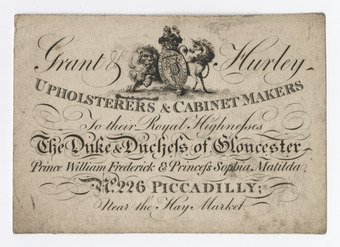 Grant & Hurley
UPHOLSTERERS & CABINET MAKERS
To their Royal Highneſses
The Duke & Ducheſs of Gloucester
Prince William Frederick & Princeſs Sophia Matilda,
No. 226 PICCADILLY;
Near the Hay Market.